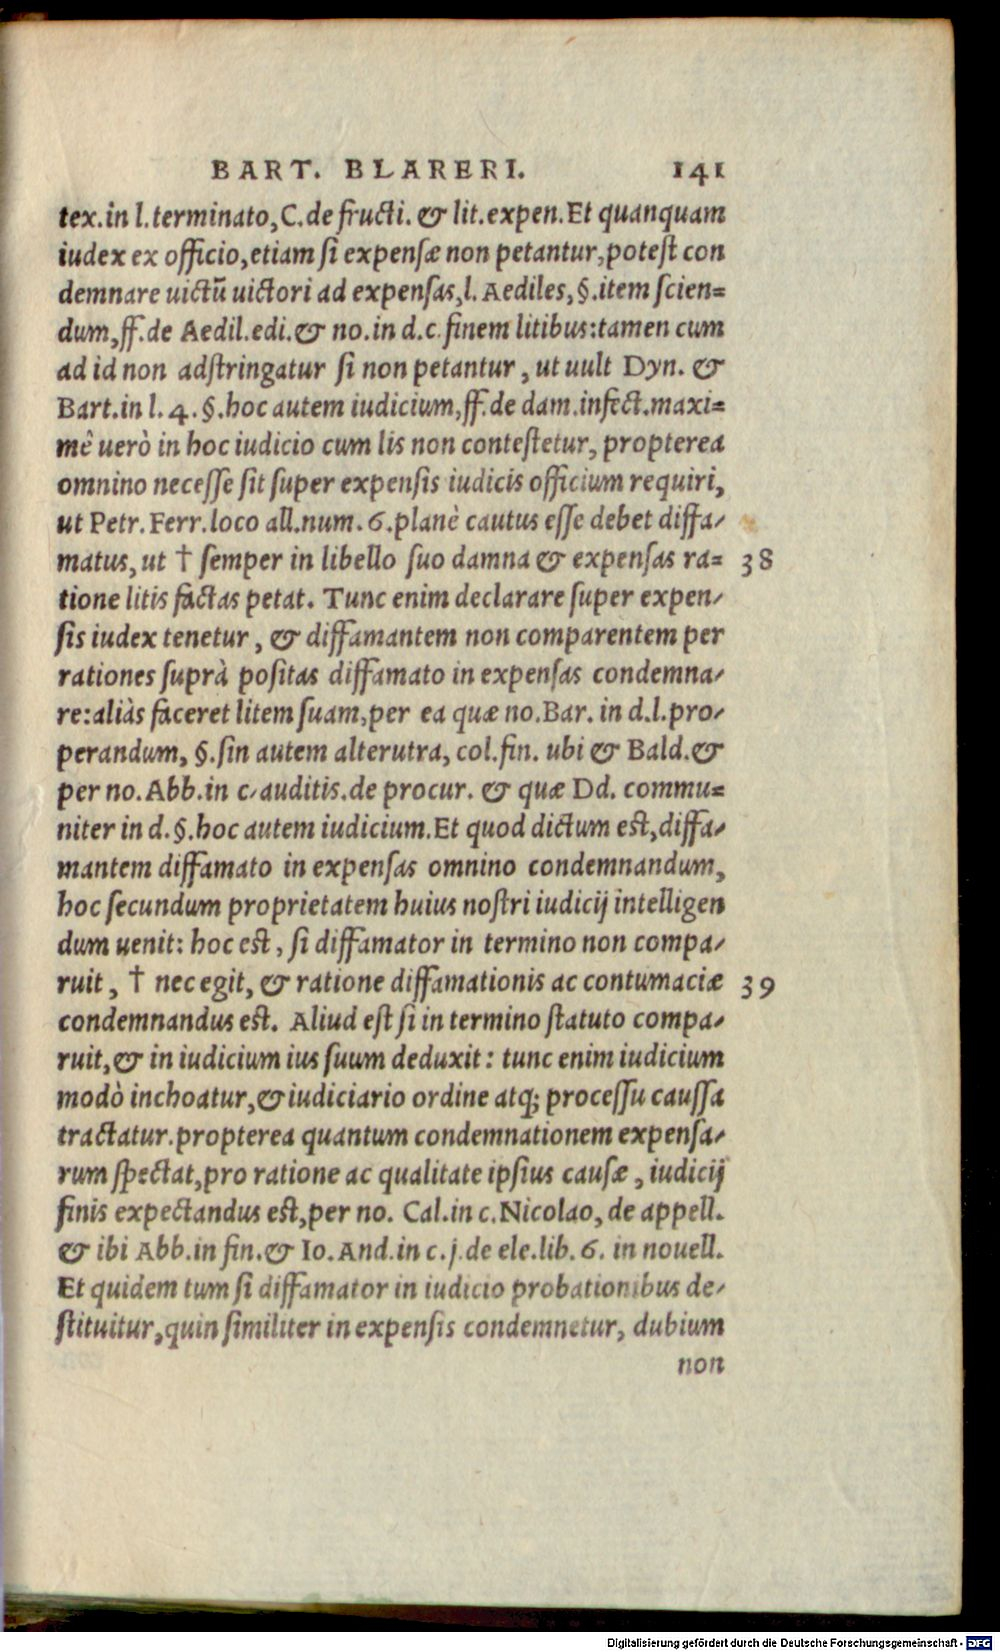 BART. BLARERI. 141
tex. in l. terminato, C. de fructi. & lit. expen. Et quanquam
iudex ex officio, etiam si expensæ non petantur, potest con
demnare uictū uictori ad expensas, l. Aediles, §. item scien=
dum, ff. de Aedil. edi. & no. in d. c. finem litibus: tamen cum
ad id non adstringatur si non petantur, ut uult Dyn. &
Bart. in l. 4. §. hoc autem iudicium, ff. de dam. infect. maxi=
mê uerò in hoc iudicio cum lis non contestetur, propterea
omnino necesse sit super expensis iudicis officium requiri,
ut Petr. Ferr. loco all. num. 6. planè cautus esse debet diffa-
matus, ut † semper in libello suo damna & expensas ra= 38
tione litis factas petat. Tunc enim declarare super expen-
sis iudex tenetur, & diffamantem non comparentem per
rationes suprà positas diffamato in expensas condemna-
re: aliàs faceret litem suam, per ea quæ no. Bar. in d. l. pro-
perandum, §. sin autem alterutra, col. fin. ubi & Bald. &
per no. Abb. in c. auditis. de procur. & quæ Dd. commu=
niter in d. §. hoc autem iudicium. Et quod dictum est, diffa-
mantem diffamato in expensas omnino condemnandum,
hoc secundum proprietatem huius nostri iudicij intelligen
dum uenit: hoc est, si diffamator in termino non compa-
ruit, † nec egit, & ratione diffamationis ac contumaciæ 39
condemnandus est. Aliud est si in termino statuto compa-
ruit, & in iudicium ius suum deduxit: tunc enim iudicium
modò inchoatur, & iudiciario ordine atq; processu caussa
tractatur. propterea quantum condemnationem expensa-
rum spectat, pro ratione ac qualitate ipsius causæ, iudicij
finis expectandus est, per no. Cal. in c. Nicolao, de appell.
& ibi Abb. in fin. & Io. And. in c. j. de ele. lib. 6. in nouell.
Et quidem tum si diffamator in iudicio probationibus de-
stituitur, quin similiter in expensis condemnetur, dubium
non
Digitalisierung gefördert durch die Deutsche Forschungsgemeinschaft - DFG